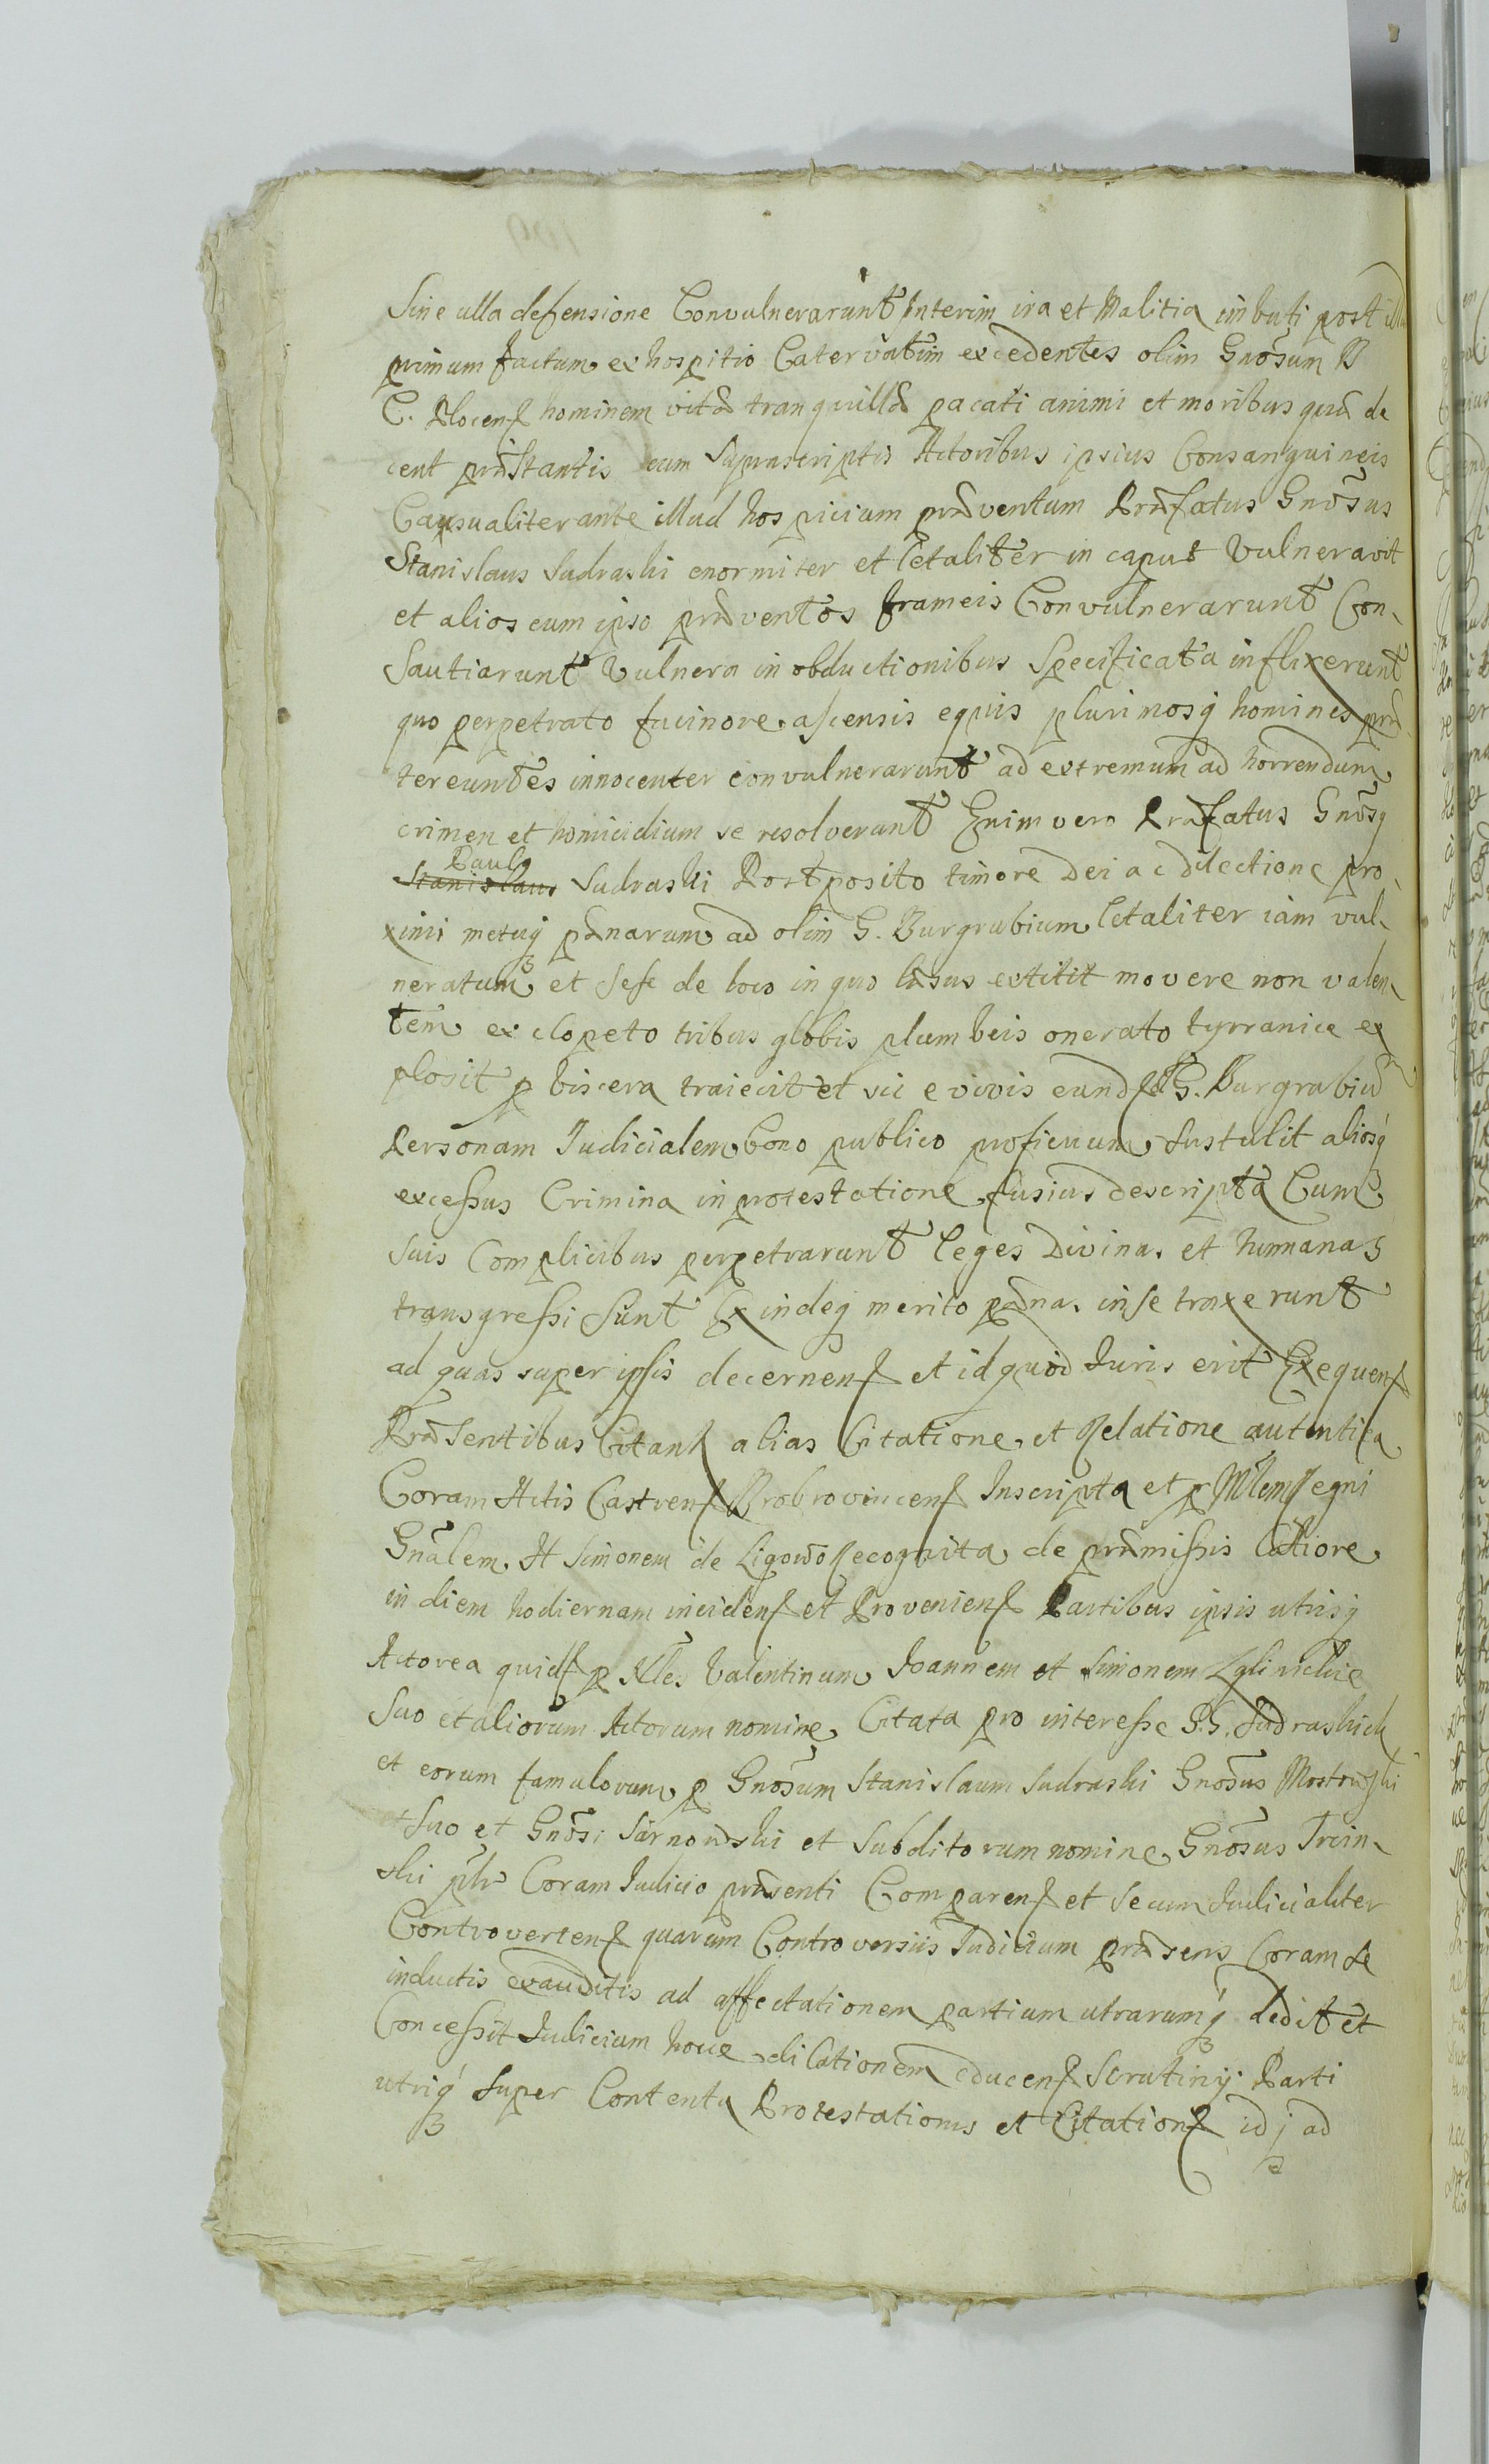 Sine ulla defensione Convulnerarunt Interim ira et Malitia imbuti post
primum factum ex hospitio Catervatim excedentes olim Gnõsum B
C. Plocens hominem vitæ tranquillæ pacati animi et moribus quæ de
cent præstantis cum Suprascriptis Actoribus ipsius Consanguineis
Causualiter ante illud hospicium præventum Præfatus Gnõsus
Stanislaus Sudraski enormiter et letaliter in caput Vulneravit
et alios cum ipso præventos frameis Convulnerarunt Con-
Sautiarunt Vulnera in obductionibus Specificata inflixerunt
quo perpetrato facinore ascensis equis plurimosq homines præ
tereuntes innocenter convulnerarunt ad extremum ad horrendum
crimen et homicidium se resolverunt Enim vero Præfatus Gnõsq
Paulq
Stanislaus Sudraski Postposito timore Dei ac dilectione pro-
ximi metuq pænarum ad olim G. Burgrabium letaliter iam vul-
neratum et sese de loco in quo læsus extitit movere non valen-
tem ex clopeto tribus globis plumbeis onerato tyrranice ex
plosit p biscera traiecit et sic e vivis eund G. Burgrabiũ
Personam Judicialem bono publico proficuum sustulit aliosq
excessus Crimina in protestatione fusius descripta Cum
suis Complicibus perpetrarunt leges Divinas et humanas
transgressi Sunt Exindeq merito pænas in se traxerunt
ad quas super ipsis decernen et id quod Juris erit Exequen
Præsentibus Citant alias Citatione et Relatione autentica
Coram Actis Castren Brobrovincen Inscripta et p Mlem Regni
Gnãlem H Simonem de Ligowo Recognita de præmissis latiore
in diem hodiernam inciden et Provenien Partibus ipsis utrisq
Actorea quid p Nles Valentinum Joannem et Simonem
Suo et aliorum Actorum nomine Citata pro interesse G.G. Sudraskich
et eorum famulorum p Gnõsum Stanislaum Sudraski Gnõsus Mostowski
et Suo et Gnõsi Sarnowski et Subditorum nomine Gnõsus Trcin-
ski plr Coram Judicio præsenti Comparen et secum Judicialiter
Controverten quarum Controversiis Judicium præsens Coram se
inductis exauditis ad affectationem partium utrarumq dedit et
Concessit Judicium hocce dilationem educen Scrutinij Parti
utriq super Contenta Protestationis et Citation id j ad